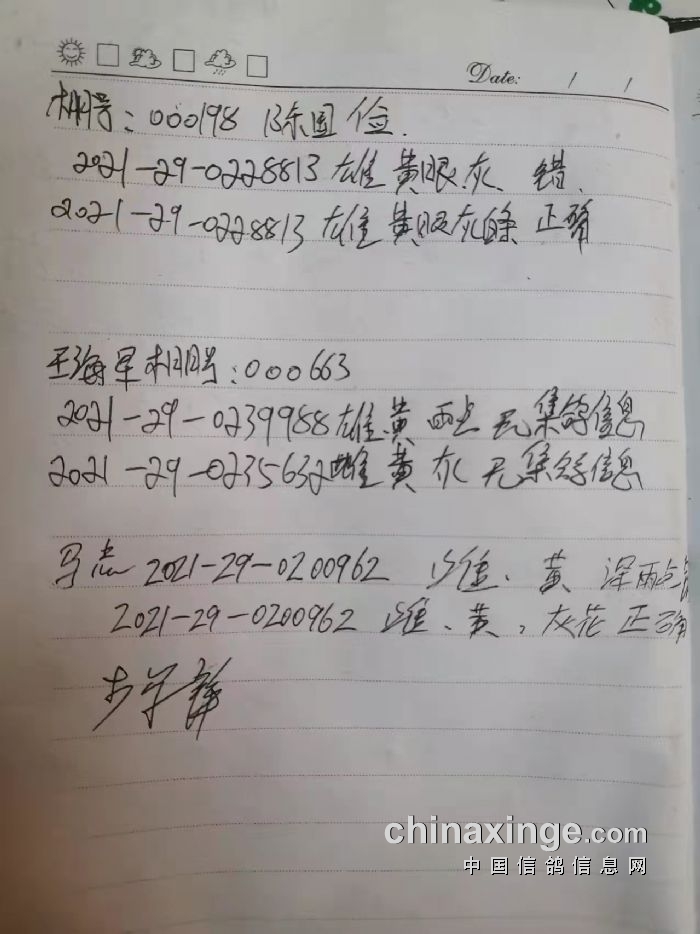 Date: / /
棚号：000198 陈国俭.
2021-29-0228813 雄 黄眼灰 错.
2021-29-0228813 雄 黄眼灰白条 正确
王海军棚号：000663
2021-29-0239988雄黄 雨点 无集鸽信息
2021-29-0235632雌黄 灰 无集鸽信息
马忠 2021-29-0200962 雄、黄 深雨点
2021-29-0200962 雄、黄，灰花 正确
chinaxinge.com
中国信鸽信息网